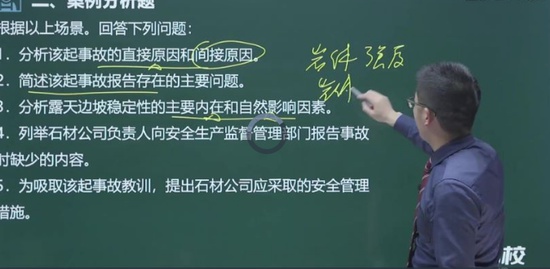 二、案例分析题
根据以上场景。回答下列问题：
1．分析该起事故的直接原因和间接原因。
2．简述该起事故报告存在的主要问题。
3．分析露天边坡稳定性的主要内在和自然影响因素。
4．列举石材公司负责人向安全生产监督管理部门报告事故
时缺少的内容。
5．为吸取该起事故教训，提出石材公司应采取的安全管理
措施。
岩体 强度
岩体
校